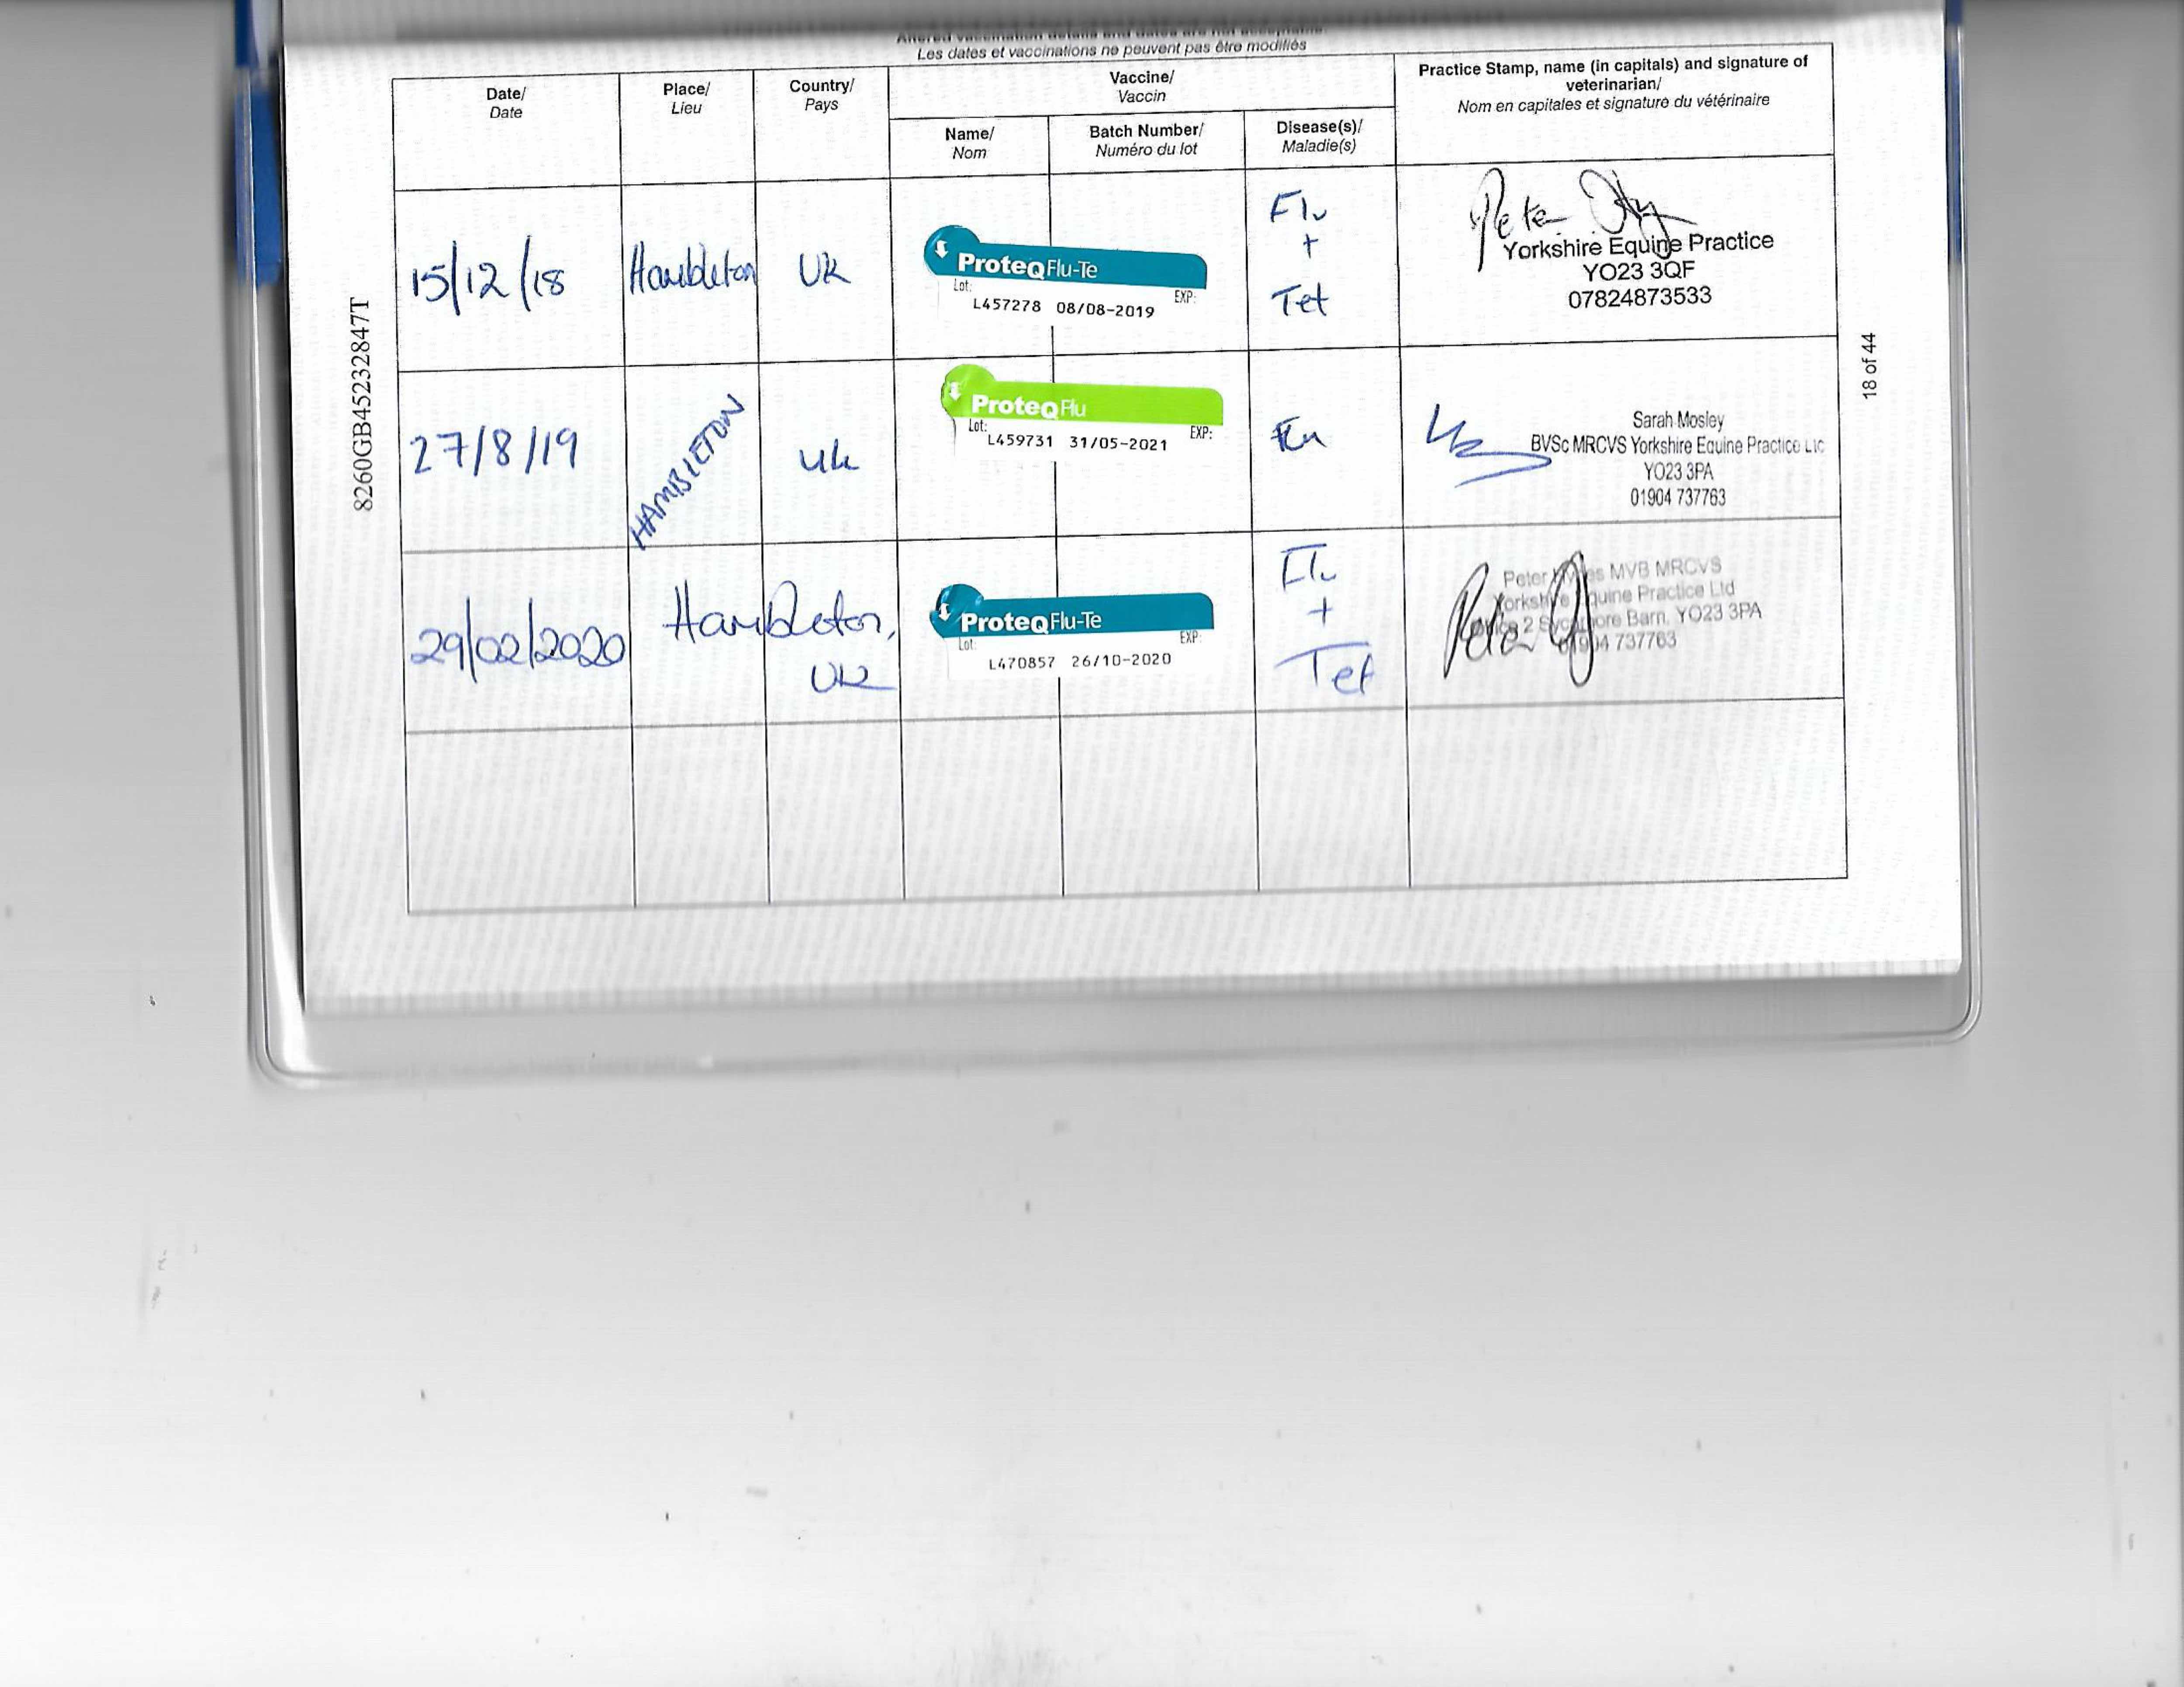 Altered vaccination details and dates are not acceptable.
Les dates et vaccinations ne peuvent pas être modifiés
Date/
Date
Place/
Lieu
Country/
Pays
Vaccine/
Vaccin
Name/
Nom
Batch Number/
Numéro du lot
Disease(s)/
Maladie(s)
Practice Stamp, name (in capitals) and signature of
veterinarian/
Nom en capitales et signature du vétérinaire
15/12/18
Hambleton
UK
ProteqFlu-Te
Lot:
EXP:
L457278 08/08-2019
Flu
+
Tet
Peter
Yorkshire Equine Practice
YO23 3QF
07824873533
27/8/19
HAMBLETON
UK
ProteqFlu
Lot:
EXP:
L459731 31/05-2021
Flu
Sarah Mosley
BVSc MRCVS Yorkshire Equine Practice Llc
YO23 3PA
01904 737763
29/02/2020
Hambleton,
UK
ProteqFlu-Te
Lot:
EXP:
L470857 26/10-2020
Flu
+
Tet
Peter MVB MRCVS
Yorkshire Equine Practice Ltd
2 Sycamore Barn, YO23 3PA
01904 737763
8260GB45232847T
18 of 44